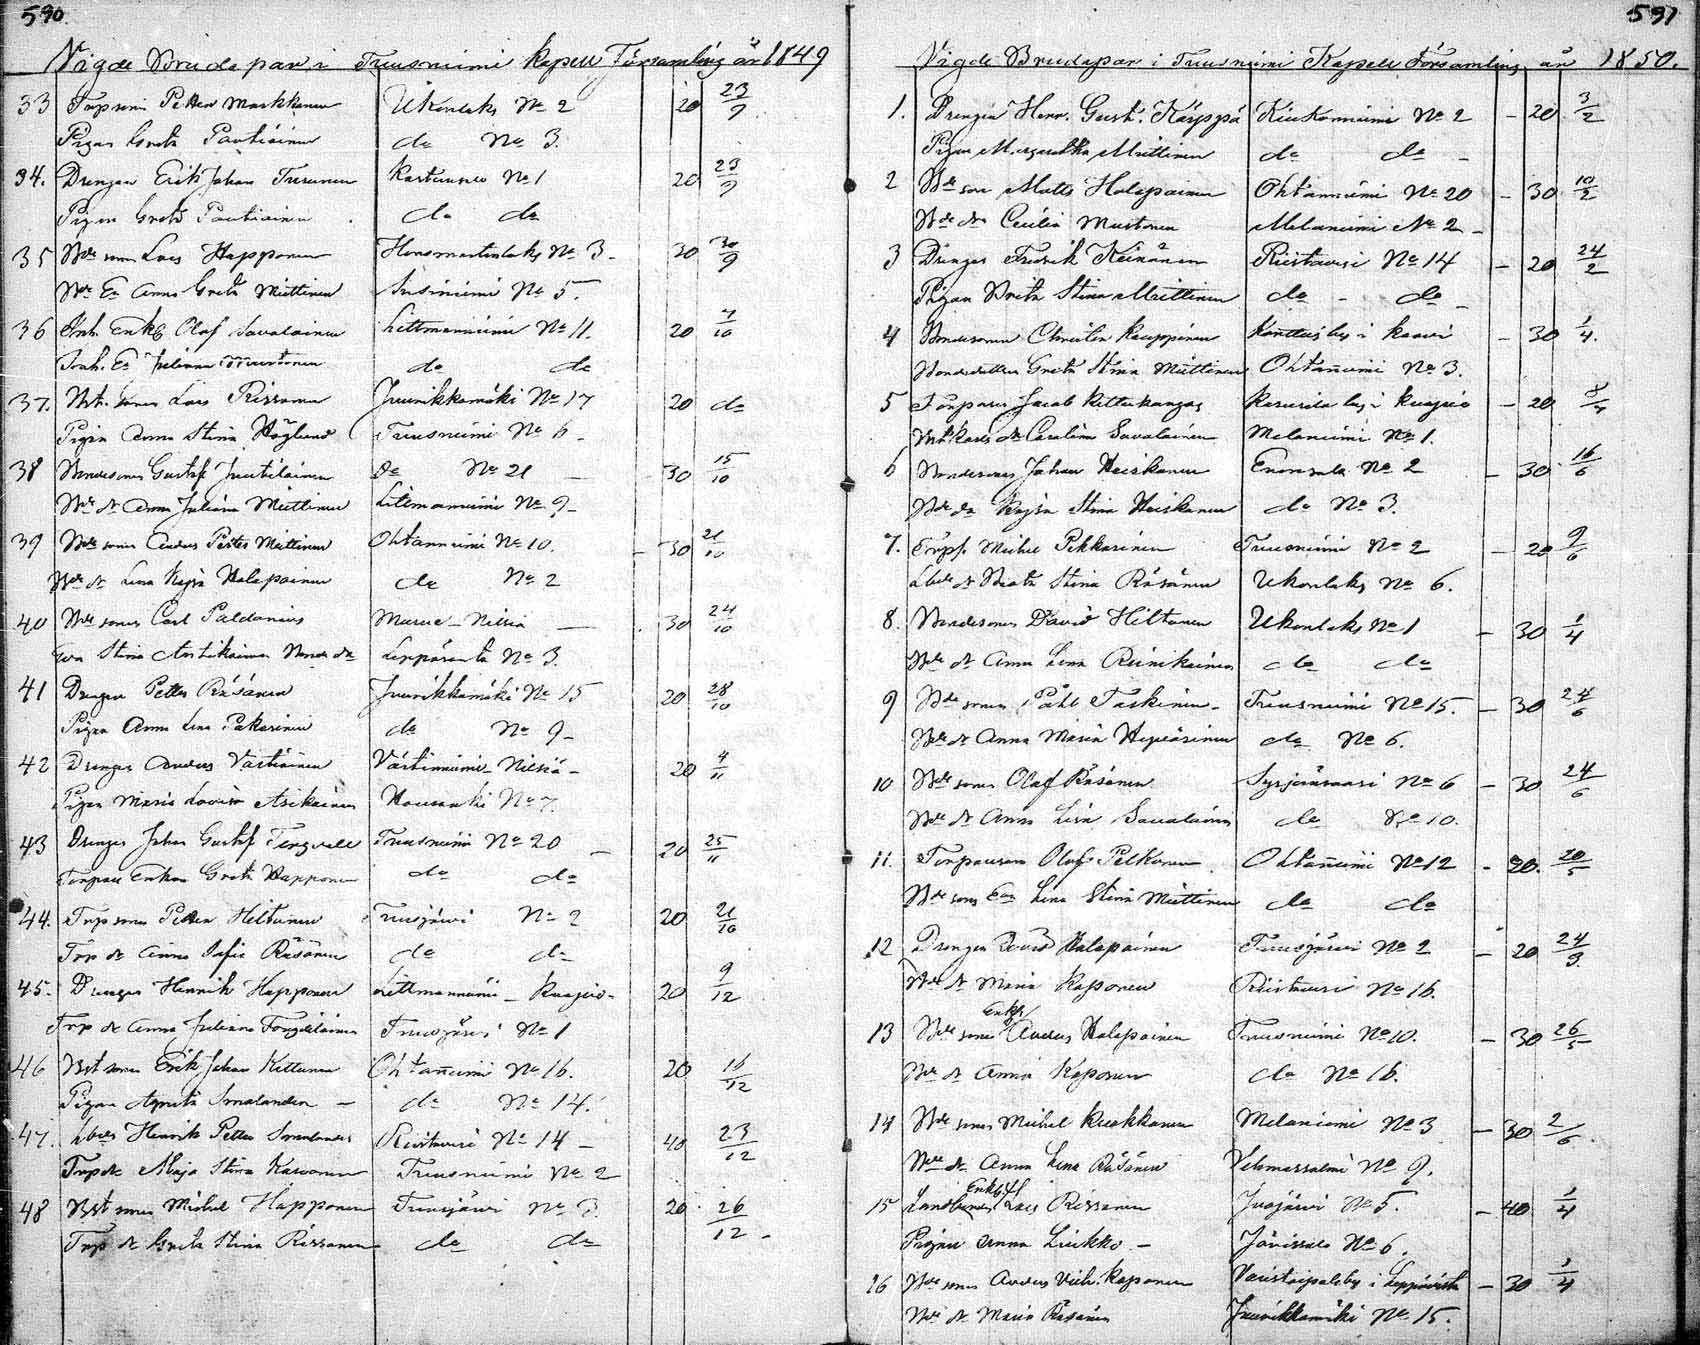 590.
Vigde Brudapar i Tuusniemi kapell Församling år 1849
33 Torpson Petter Markkanen Ukonlaks No 2 20 23/9
Pigan Greta Pautiainen do No 3.
34. Drengen Erik Johan Turunen No 1 20 23/9
Pigan Greta Pautiainen do do
35 Bde sonen Lars Happonen No 3 20 30/9
Bde Ea Anna Greta Miettinen Susiniemi No 5.
36 Inh. Enkl Olof Savolainen Littmaniemi No 11. 20 7/10
Inh. Ea Juliana do do
37. Bst. sonen Lars Rissanen Juurikkamäki No 17 20 do
Pigan Anna Stina Höglund Tuusniemi No 6
38 Bondesonen Gustaf Juutilainen Do No 21 30 15/10
Bde dr Anna Juliana Miettinen Litmaniemi No 9
39 Bde sonen Anders Petter Miettinen Ohtaniemi No 10. 30 21/10
Bde dr Lena Kajsa Halapainen do No 2
40 Bde sonen Carl Paldanius Nilsiä 30 24/10
Eva Stina Antikainen Bonde dr Lepparanta No 3.
41 Drengen Petter Räsänen Juurikkamäki No 15 20 28/10
Pigan Anna Lena Pakarinen do No 9
42 Drengen Anders Vartiainen Västinniemi Nilsiä 20 4/11
Pigan Maria Lovisa Asikainen No 7.
43 Drengen Johan Gustaf Tengvall Tuusniemi No 20 20 25/11
Torpare Enkan Greta Happonen do do
44. Torp sonen Petter Hiltunen Tuusjärvi No 2 20 21/10
Torp dr Anna Sofia Räsänen do do
45. Drengen Henrik Happonen Littmanniemi Kuopio 20 9/12
Torp dr Anna Juliana Tuusjärvi No 1
46 Bst sonen Erik Johan Kettunen Ohtaniemi No 16. 20 16/12
Pigan Agneta Smolander do No 14.
47. Lbdes Henrik Petter Smolander Riistavesi No 14 40 23/12
Torp dr Maja Stina Karvonen Tuusniemi No 2
48 Bst sonen Michel Happonen Tuusjärvi No 3 20 26/12
Torp dr Greta Stina Rissanen do do
591
Vigde Brudapar i Tuusniemi Kapell Församling år 1850.
1. Drengen Henr. Gust. Käyppä Kiukoniemi No 2 20 3/2
Pigan Margaretha Miettinen do do
2 Bde son Matts Halapainen Ohtaniemi No 20 30 10/2
Bde dr Cecilia Mustonen Melaniemi No 2
3 Drengen Fredrik Keinänen Riistavesi No 14 20 24/2
Pigan Brita Stina Miettinen do do
4 Bondesonen Christer Kauppinen by i Kaavi 30 1/4.
Bondedottren Greta Stina Miettinen Ohtaniemi No 3.
5 Torparen Jacob Kettukangas by i Kuopio 20 8/4
dr Carolina Savolainen Melaniemi No 1.
6 Bondesonen Johan Heiskanen Enonsalo No 2 30 16/6
Bde dr Kajsa Stina Heiskanen do No 3.
7. Torps. Michel Pekkarinen Tuusniemi No 2 20 9/6
Lbde dr Beata Stina Räsänen Ukonlaks No 6.
8. Bondesonen David Hiltunen Ukonlaks No 1 30 1/4
Bde dr Anna Lena Reinikainen do do
9 Bde sonen Påhl Taskinen Tuusniemi No 15. 30 24/6
Bde dr Anna Maria Hyvärinen do No 6.
10 Bde sonen Olof Räsänen Syrjänsaari No 6 30 24/6
Bde dr Anna Lisa Savolainen do No 10.
11. Torparen Olof Pelkonen Ohtaniemi No 12 20. 20/5
Bde sons Ea Lena Stina Miettinen do do
12 Drengen David Halapainen Tuusjärvi No 2 20 24/3.
Bde dr Maria Kaponen Riistavesi No 16.
13 Bde sonen Enkl Anders Halapainen Tuusniemi No 10. 30 26/5
Bde dr Anna Kaponen do No 16.
14 Bde sonen Michel Ruokkanen Melaniemi No 3 30 2/6.
Bde dr Anna Lena Räsänen Vehmersalmi No 9.
15 Landbonden Enkl. Lars Rissanen Juojärvi No 5. 40 1/4
Pigan Anna Liukko No 6.
16 Bde sonen Anders Vilh. Kaponen by i Leppävirta 30 1/4
Bde dr Maria Räsänen Juurikkamäki No 15.